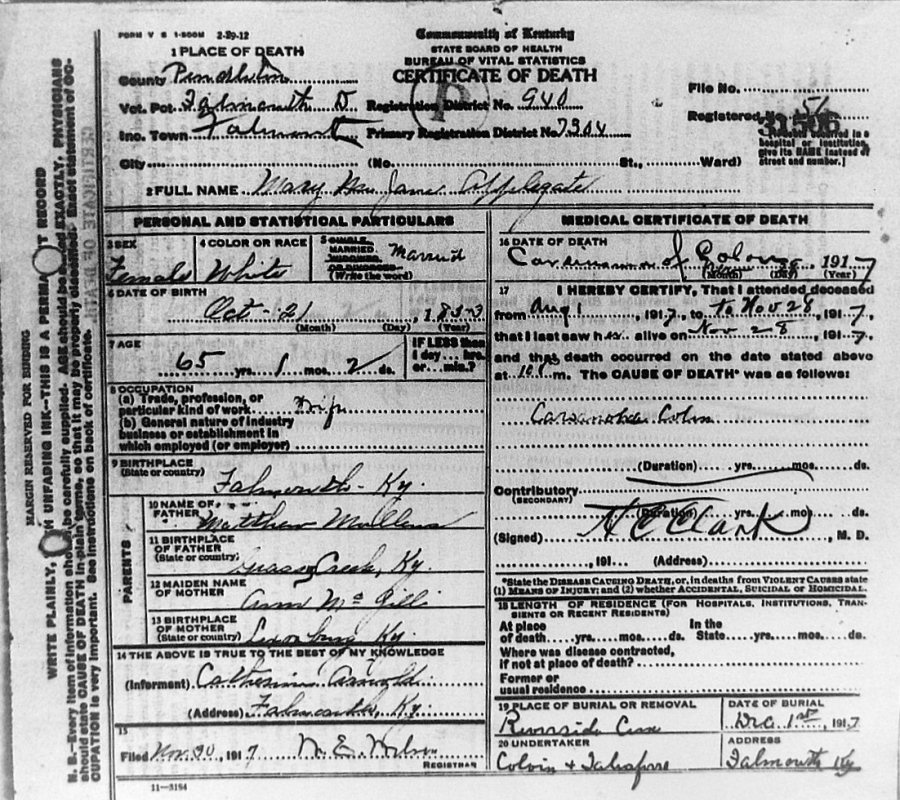 FORM V S 1-500M 2-29-12
Commonwealth of Kentucky
STATE BOARD OF HEALTH
BUREAU OF VITAL STATISTICS
CERTIFICATE OF DEATH
1 PLACE OF DEATH
County
Vot. Pct Falmouth D Registration District No. 940
File No.
Inc. Town Falmouth Primary Registration District No 7304
Registered No. 56
31506
hospital or institution, give its NAME instead of street and number.]
City (No. St., Ward)
2 FULL NAME Mary Jane Applegate
PERSONAL AND STATISTICAL PARTICULARS
3 SEX Female
4 COLOR OR RACE White
5 SINGLE, MARRIED, WIDOWED, OR DIVORCED (Write the word) Married
6 DATE OF BIRTH
Oct - 21, 1853
(Month) (Day) (Year)
7 AGE
65 yrs. 1 mos. 2 ds.
IF LESS than 1 day... hrs. or... min.?
8 OCCUPATION
(a) Trade, profession, or particular kind of work
(b) General nature of industry business or establishment in which employed (or employer)
9 BIRTHPLACE
(State or country) Falmouth - Ky.
PARENTS
10 NAME OF FATHER Matthew Mullens
11 BIRTHPLACE OF FATHER
(State or country) Grassy Creek, Ky.
12 MAIDEN NAME OF MOTHER Ann McGill
13 BIRTHPLACE OF MOTHER
(State or country) Ky.
14 THE ABOVE IS TRUE TO THE BEST OF MY KNOWLEDGE
(Informant) Catherine Arnold
(Address) Falmouth, Ky.
15
Filed Nov. 30, 1917 W. E. Wilson
REGISTRAR
11-3184
MEDICAL CERTIFICATE OF DEATH
16 DATE OF DEATH
Carcinoma of Colon, 1917
(Month) (Day) (Year)
17 I HEREBY CERTIFY, That I attended deceased
from Aug 1, 1917, to to Nov 28, 1917,
that I last saw h alive on Nov 28, 1917,
and that death occurred on the date stated above
at m. The CAUSE OF DEATH* was as follows:
Colon
(Duration) yrs. mos. ds.
Contributory
(SECONDARY)
(Duration) yrs. mos. ds.
(Signed) H C Clark, M. D.
, 191 (Address)
*State the DISEASE CAUSING DEATH, or, in deaths from VIOLENT CAUSES state
(1) MEANS OF INJURY; and (2) whether ACCIDENTAL, SUICIDAL or HOMICIDAL.
18 LENGTH OF RESIDENCE (FOR HOSPITALS, INSTITUTIONS, TRANSIENTS OR RECENT RESIDENTS)
At place of death yrs. mos. ds. In the State yrs. mos. ds.
Where was disease contracted,
if not at place of death?
Former or
usual residence
19 PLACE OF BURIAL OR REMOVAL
Riverside Cem
DATE OF BURIAL
Dec 1st, 1917
20 UNDERTAKER
Colvin &
ADDRESS
Falmouth Ky
MARGIN RESERVED FOR BINDING
WRITE PLAINLY, WITH UNFADING INK—THIS IS A PERMANENT RECORD
N. B.—Every item of information should be carefully supplied. AGE should be stated EXACTLY. PHYSICIANS
should state CAUSE OF DEATH in plain terms, so that it may be properly classified. Exact statement of OC-
CUPATION is very important. See instructions on back of certificate.